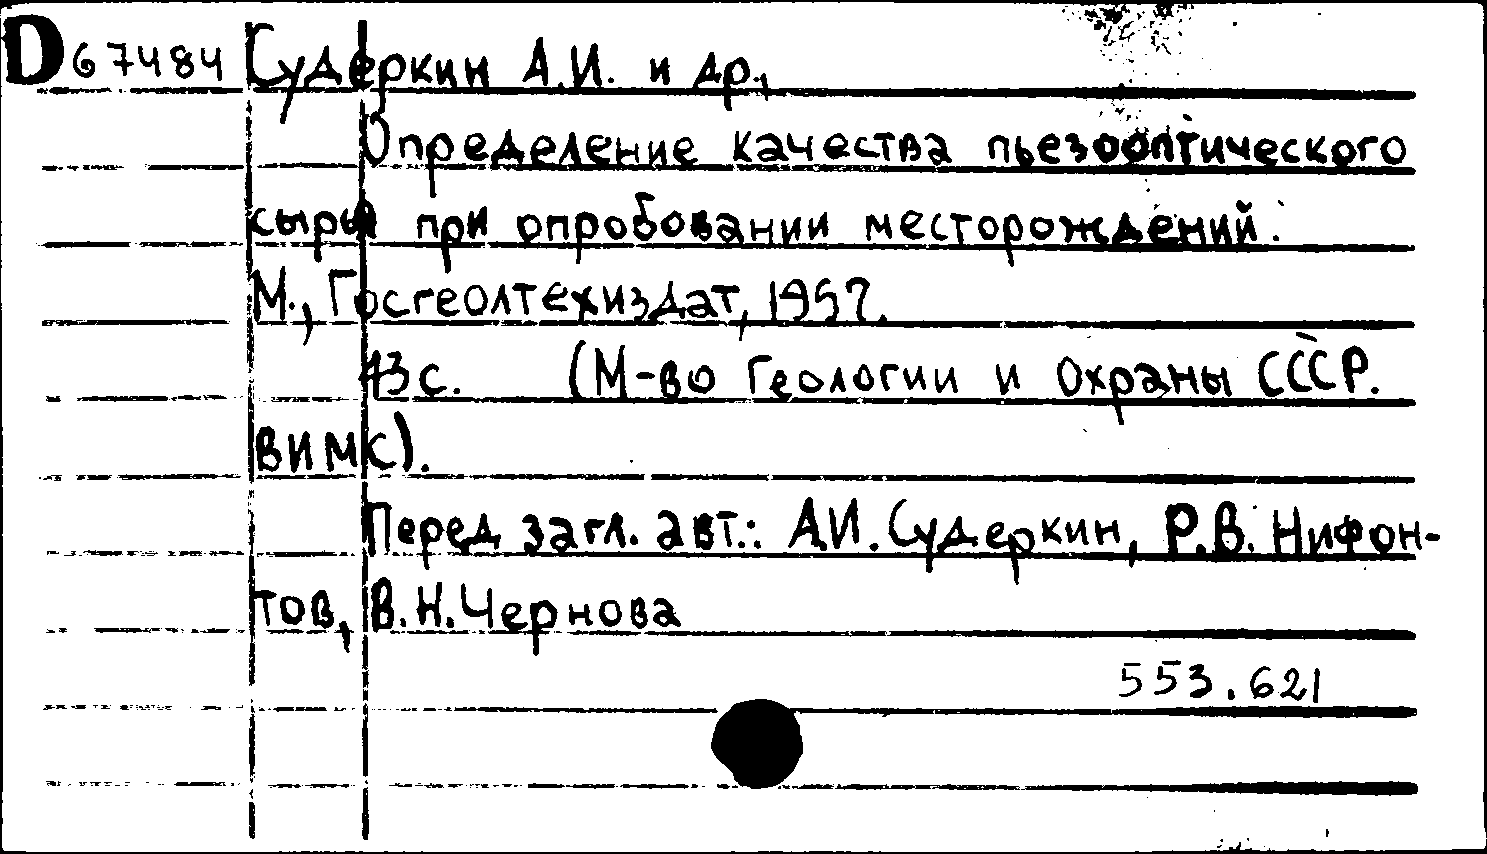 D67484 Судеркин А.И. и др.,
Определение качества пьезооптического
сырья при опробовании месторождений.
М., Госгеолтехиздат, 1957.
43 с. (М-во Геологии и Охраны СССР.
ВИМС).
Перед загл. авт.: А.И. Судеркин, Р.В. Нифон-
тов, В.Н. Чернова
553.621